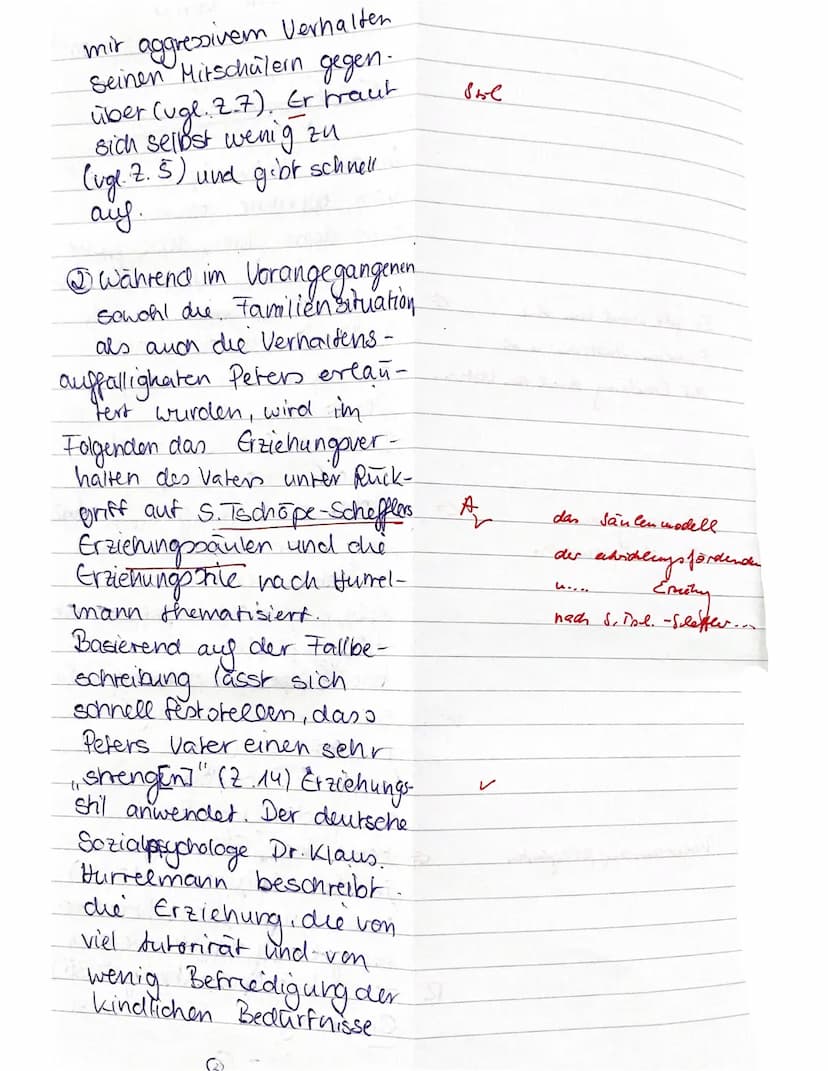 mit aggressivem Verhalten
seinen Mitschülern gegen-
über (vgl. Z.7). Er traut
sich selbst wenig zu
(vgl. Z. 5) und gibt schnell
auf.
② Während im Vorangegangenen
sowohl die Familiensituation
als auch die Verhaltens-
auffälligkeiten Peters erläu-
tert wurden, wird im
Folgenden das Erziehungsver-
halten des Vaters unter Rück-
griff auf S. Tschöpe-Schefflers
Erziehungssäulen und die
Erziehungstile nach Hurrel-
mann thematisiert.
Basierend auf der Fallbe-
schreibung lässt sich
schnell feststellen, dass
Peters Vater einen sehr
„streng[en]" (Z.14) Erziehungs-
stil anwendet. Der deutsche
Sozialpsychologe Dr. Klaus
Hurrelmann beschreibt
die Erziehung, die von
viel Autorität und von
wenig Befriedigung der
kindlichen Bedürfnisse
②
A
das Säulenmodell
der entwicklungsfördernden
u.... Erziehung
nach S.
✓